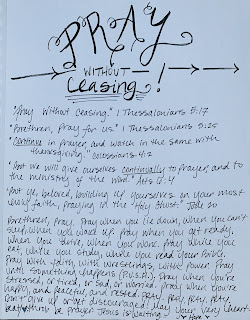 PRAY
WITHOUT
Ceasing!
"Pray Without Ceasing." 1 Thessalonians 5:17
"Brethren, pray for us." 1 Thessalonians 5:25
"Continue in prayer, and watch in the same with
thanksgiving." Colossians 4:2
"But we will give ourselves continually to prayer, and to
the ministry of the Word." Acts 6:4
"But ye, beloved, building up yourselves on your most
holy faith, praying in the Holy Ghost." Jude 20
Brethren, pray. Pray when you lie down, when you can't
sleep, when you wake up. Pray when you get ready,
when you drive, when you work. Pray while you
eat, while you study, while you read your Bible.
Pray with faith, with wrestlings, with power. Pray
until something happens (P.U.S.H.). Pray when you're
stressed, or tired, or sad, or worried. Pray when you're
happy, and peaceful, and rested. Pray, pray, pray, pray.
Don't give up or get discouraged. May your very breath
be prayer. Jesus is waiting